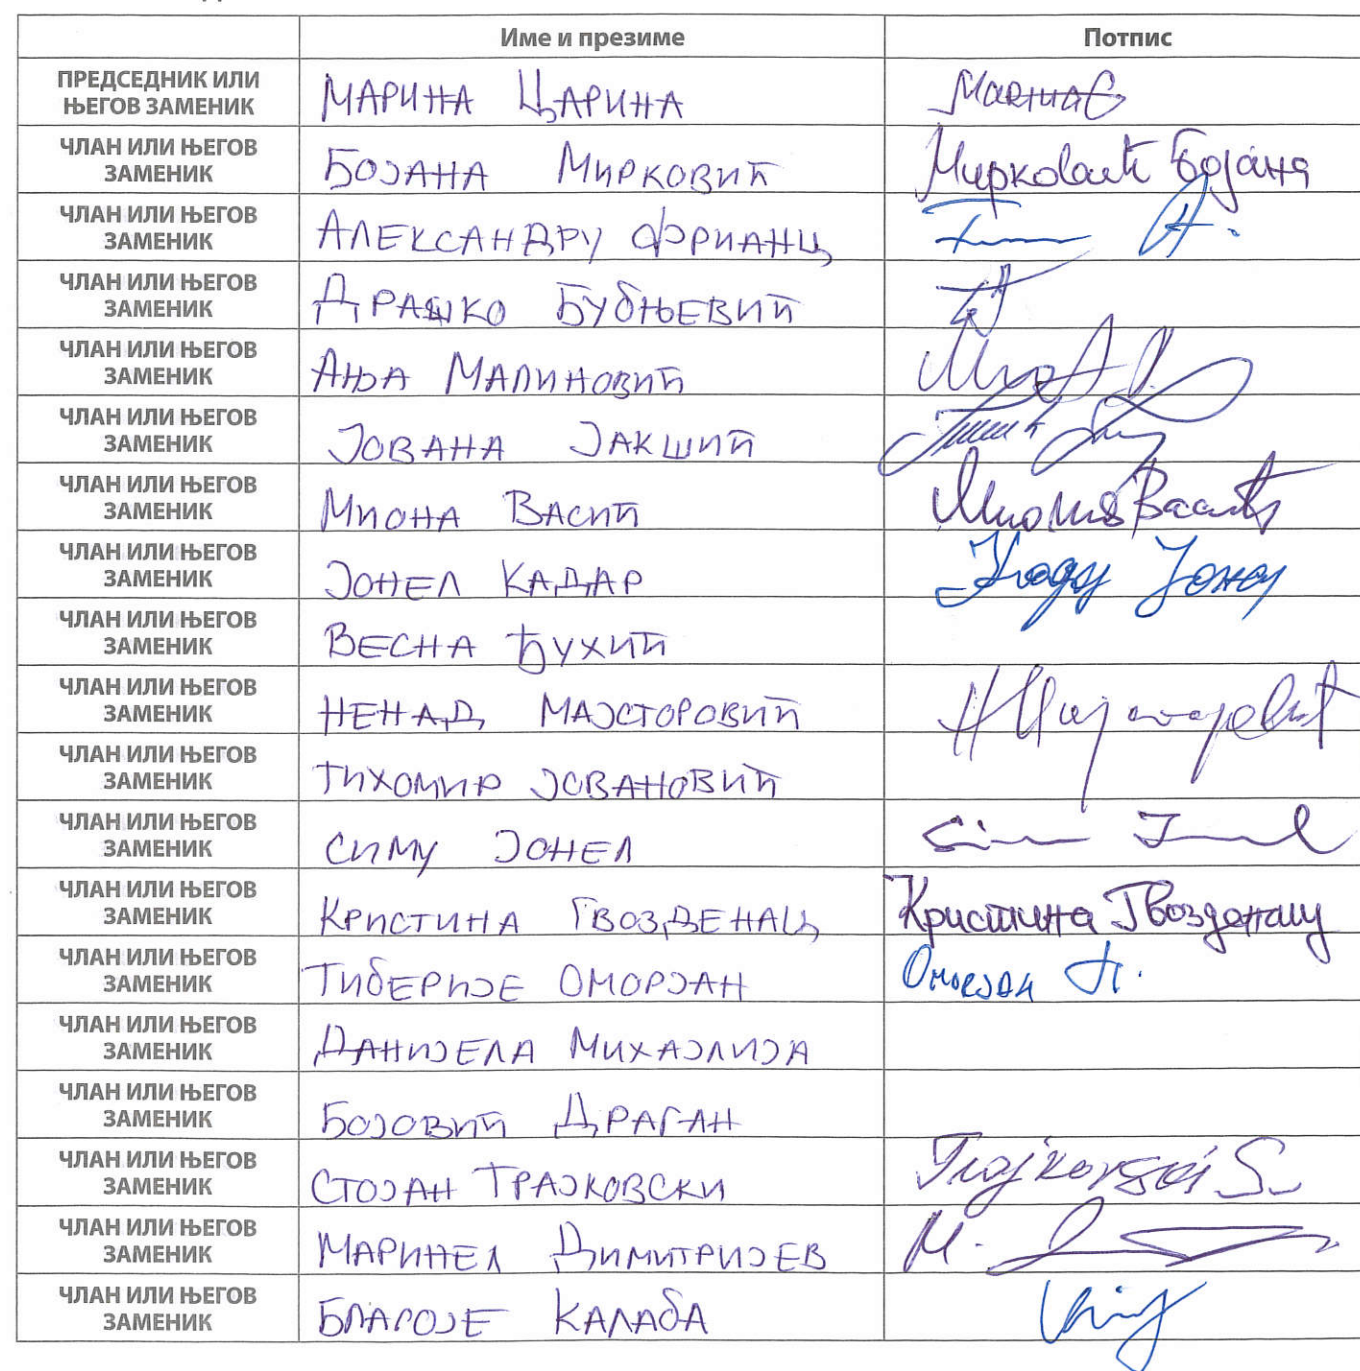 Име и презиме Потпис
ПРЕДСЕДНИК ИЛИ
ЊЕГОВ ЗАМЕНИК
МАРИНА ЦАРИНА
ЧЛАН ИЛИ ЊЕГОВ
ЗАМЕНИК
БОЈАНА МИРКОВИЋ Мирковић Бојана
ЧЛАН ИЛИ ЊЕГОВ
ЗАМЕНИК
АЛЕКСАНДРУ ФРИАНЦ
ЧЛАН ИЛИ ЊЕГОВ
ЗАМЕНИК
ДРАШКО БУБЊЕВИЋ
ЧЛАН ИЛИ ЊЕГОВ
ЗАМЕНИК
АЊА МАЛИНОВИЋ
ЧЛАН ИЛИ ЊЕГОВ
ЗАМЕНИК
ЈОВАНА ЈАКШИЋ
ЧЛАН ИЛИ ЊЕГОВ
ЗАМЕНИК
МИОНА ВАСИЋ Миона Васић
ЧЛАН ИЛИ ЊЕГОВ
ЗАМЕНИК
ЈОНЕЛ КАДАР
ЧЛАН ИЛИ ЊЕГОВ
ЗАМЕНИК
ВЕСНА ЂУХИЋ
ЧЛАН ИЛИ ЊЕГОВ
ЗАМЕНИК
НЕНАД МАЈСТОРОВИЋ
ЧЛАН ИЛИ ЊЕГОВ
ЗАМЕНИК
ТИХОМИР ЈОВАНОВИЋ
ЧЛАН ИЛИ ЊЕГОВ
ЗАМЕНИК
СИМУ ЈОНЕЛ
ЧЛАН ИЛИ ЊЕГОВ
ЗАМЕНИК
КРИСТИНА ГВОЗДЕНАЦ Кристина Гвозденац
ЧЛАН ИЛИ ЊЕГОВ
ЗАМЕНИК
ТИБЕРИЈЕ ОМОРЈАН Оморјан Т.
ЧЛАН ИЛИ ЊЕГОВ
ЗАМЕНИК
ДАНИЈЕЛА МИХАЈЛИЈА
ЧЛАН ИЛИ ЊЕГОВ
ЗАМЕНИК
БОЈОВИЋ ДРАГАН
ЧЛАН ИЛИ ЊЕГОВ
ЗАМЕНИК
СТОЈАН ТРАЈКОВСКИ Trajkovski S.
ЧЛАН ИЛИ ЊЕГОВ
ЗАМЕНИК
МАРИНЕЛ ДИМИТРИЈЕВ
ЧЛАН ИЛИ ЊЕГОВ
ЗАМЕНИК
БЛАГОЈЕ КАЛАБА